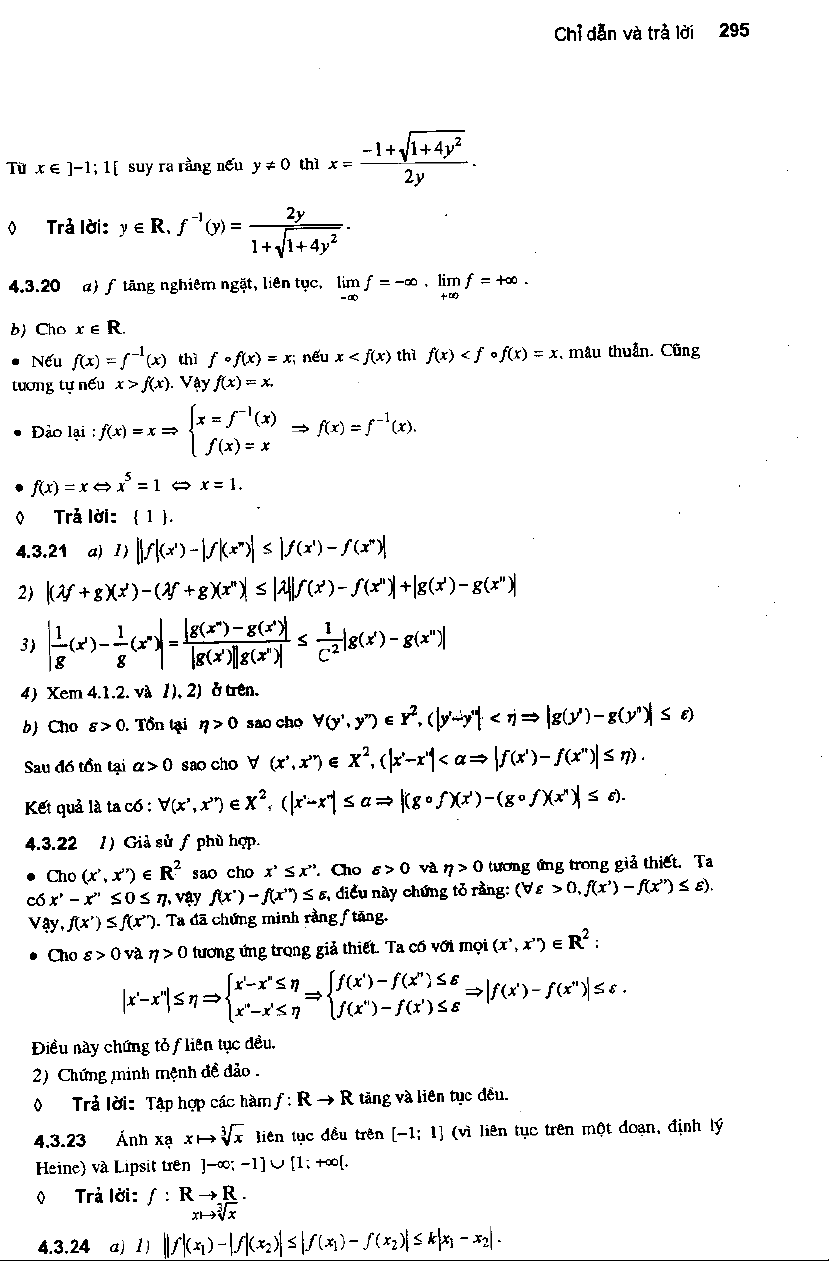 Chỉ dẫn và trả lời 295
Từ x ∈ ]–1; 1[ suy ra rằng nếu y ≠ 0 thì x = (–1 + √(1 + 4y²)) / 2y .
◊ Trả lời: y ∈ R, f⁻¹(y) = 2y / (1 + √(1 + 4y²)) .
4.3.20 a) f tăng nghiêm ngặt, liên tục, lim_{–∞} f = –∞ , lim_{+∞} f = +∞ .
b) Cho x ∈ R.
• Nếu f(x) = f⁻¹(x) thì f ∘ f(x) = x; nếu x < f(x) thì f(x) < f ∘ f(x) = x, mâu thuẫn. Cũng
tương tự nếu x > f(x). Vậy f(x) = x.
• Đảo lại : f(x) = x ⇒ { x = f⁻¹(x) ; f(x) = x ⇒ f(x) = f⁻¹(x).
• f(x) = x ⇔ x⁵ = 1 ⇔ x = 1.
◊ Trả lời: { 1 }.
4.3.21 a) 1) ||f|(x') – |f|(x")| ≤ |f(x') – f(x")|
2) |(λf + g)(x') – (λf + g)(x")| ≤ |λ||f(x') – f(x")| + |g(x') – g(x")|
3) |1/g (x') – 1/g (x")| = |g(x") – g(x')| / |g(x')||g(x")| ≤ 1/C² |g(x') – g(x")|
4) Xem 4.1.2. và 1), 2) ở trên.
b) Cho ε > 0. Tồn tại η > 0 sao cho ∀(y', y") ∈ Y², (|y'–y"| < η ⇒ |g(y') – g(y")| ≤ ε)
Sau đó tồn tại α > 0 sao cho ∀ (x', x") ∈ X², (|x'–x"| < α ⇒ |f(x') – f(x")| ≤ η) .
Kết quả là ta có : ∀(x', x") ∈ X², (|x'–x"| ≤ α ⇒ |(g ∘ f)(x') – (g ∘ f)(x")| ≤ ε).
4.3.22 1) Giả sử f phù hợp.
• Cho (x', x") ∈ R² sao cho x' ≤ x". Cho ε > 0 và η > 0 tương ứng trong giả thiết. Ta
có x' – x" ≤ 0 ≤ η, vậy f(x') – f(x") ≤ ε, điều này chứng tỏ rằng: (∀ε > 0, f(x') – f(x") ≤ ε).
Vậy, f(x') ≤ f(x"). Ta đã chứng minh rằng f tăng.
• Cho ε > 0 và η > 0 tương ứng trong giả thiết. Ta có với mọi (x', x") ∈ R² :
|x'–x"| ≤ η ⇒ { x'–x" ≤ η ; x"–x' ≤ η ⇒ { f(x') – f(x") ≤ ε ; f(x") – f(x') ≤ ε ⇒ |f(x') – f(x")| ≤ ε .
Điều này chứng tỏ f liên tục đều.
2) Chứng minh mệnh đề đảo .
◊ Trả lời: Tập hợp các hàm f : R → R tăng và liên tục đều.
4.3.23 Ánh xạ x ↦ ∛x liên tục đều trên [–1; 1] (vì liên tục trên một đoạn, định lý
Heine) và Lipsit trên ]–∞; –1] ∪ [1; +∞[.
◊ Trả lời: f : R → R .
x ↦ ∛x
4.3.24 a) 1) ||f|(x₁) – |f|(x₂)| ≤ |f(x₁) – f(x₂)| ≤ k|x₁ – x₂| .